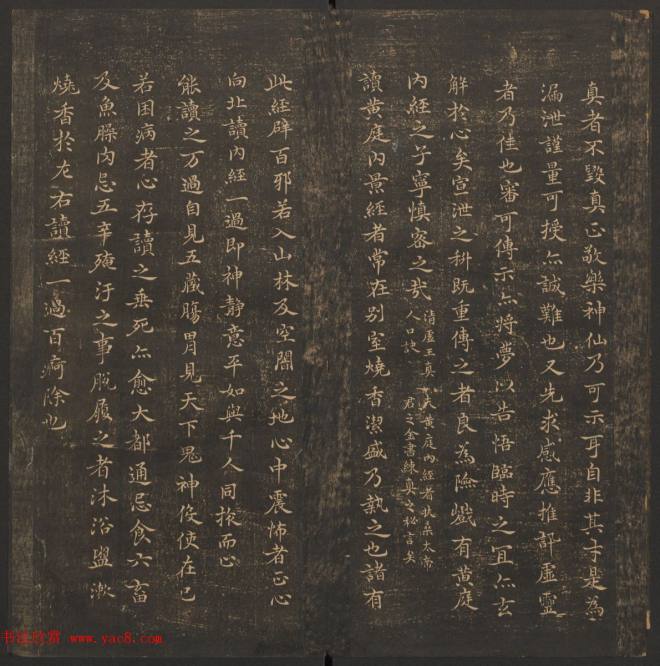 真者不毀真正敬樂神仙乃可示耳自非其才是為
漏泄謹量可授亦誠難也又先求感應推評虛靈
者乃佳也審可傳示亦將夢以告悟臨時之宜亦玄
解於心矣宣泄之科既重傳之者良為險巇有黃庭
內經之子寧慎密之哉
清虛王真人口訣
夫黃庭內經者扶桑太帝
君之金書練真之秘言矣
讀黃庭內景經者常在別室燒香潔盛乃執之也諸有
此經辟百邪若入山林及空閑之地心中震怖者正心
向北讀內經一過即神靜意平如與千人同旅而心
能讀之万過自見五藏腸胃見天下鬼神役使在己
若困病者心存讀之垂死亦愈大都通忌食六畜
及魚臊肉忌五辛殗汙之事脫履之者沐浴盥漱
燒香於左右讀經一過百痾除也
书法欣赏 www.yac8.com